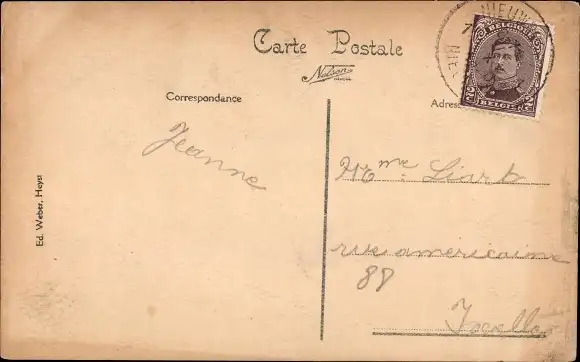 Carte Postale
Nelson
Correspondance
Adres
Jeanne
Mme. Liart
rue americaine
88
Ixelles
Ed. Weber, Heyst
NIEUW
BELGIQUE
2c 2c
BELGIË